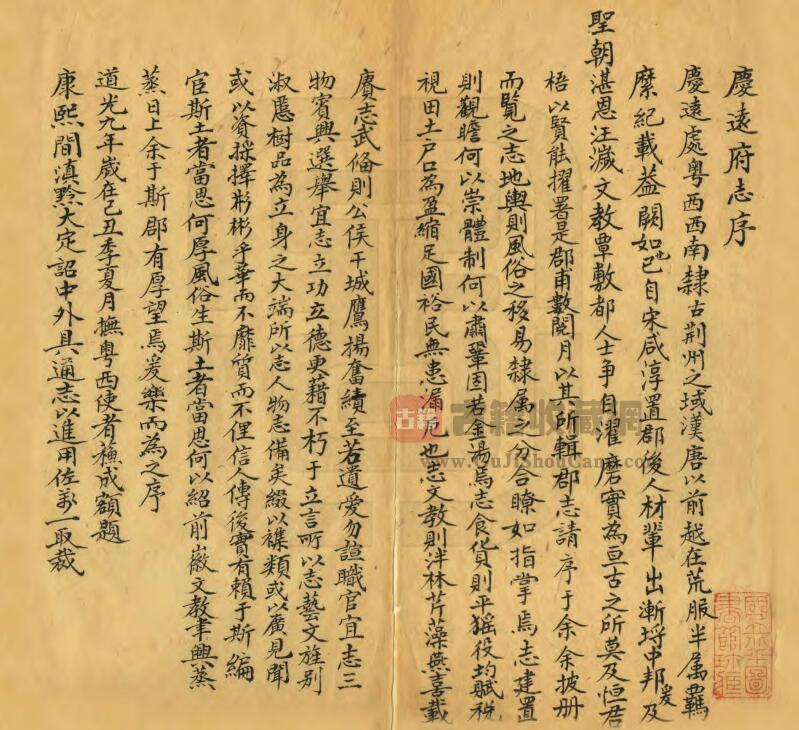 慶遠府志序
慶遠處粵西西南隸古荆州之域漢唐以前越在荒服半属羈
縻紀載葢闕如也已自宋咸淳置郡後人材輩出漸埒中邦爰及
聖朝湛恩汪濊文教覃敷都人士爭自濯磨實為亘古之所莫及恒君
梧以賢能擢署是郡甫數閱月以其所輯郡志請序于余余披册
而覽之志地輿則風俗之移易隸属之分合瞭如指掌焉志建置
則觀瞻何以崇體制何以肅鞏固若金湯焉志食貨則平猺役均賦税
視田土戸口為盈縮足國裕民無患漏卮也志文教則泮林芹藻燕喜載
賡志武俻則公侯干城鷹揚奮績至若遺愛勿諠職官宜志三
物賓興選舉宜志立功立德更藉不朽于立言所以志藝文旌别
淑慝樹品為立身之大端所以志人物志備矣綴以襍類或以廣見聞
或以資採擇彬彬乎華而不靡質而不俚信今傳後實有賴于斯編
宦斯土者當思何厚風俗生斯土者當思何以紹前徽文教聿興蒸
蒸日上余于斯郡有厚望焉爰樂而為之序
道光九年歲在己丑季夏月撫粵西使者蘓成額題
康熙間滇黔大定詔中外具通志以進用佐
一取裁
古籍收藏網
www.GuJiShouCang.com